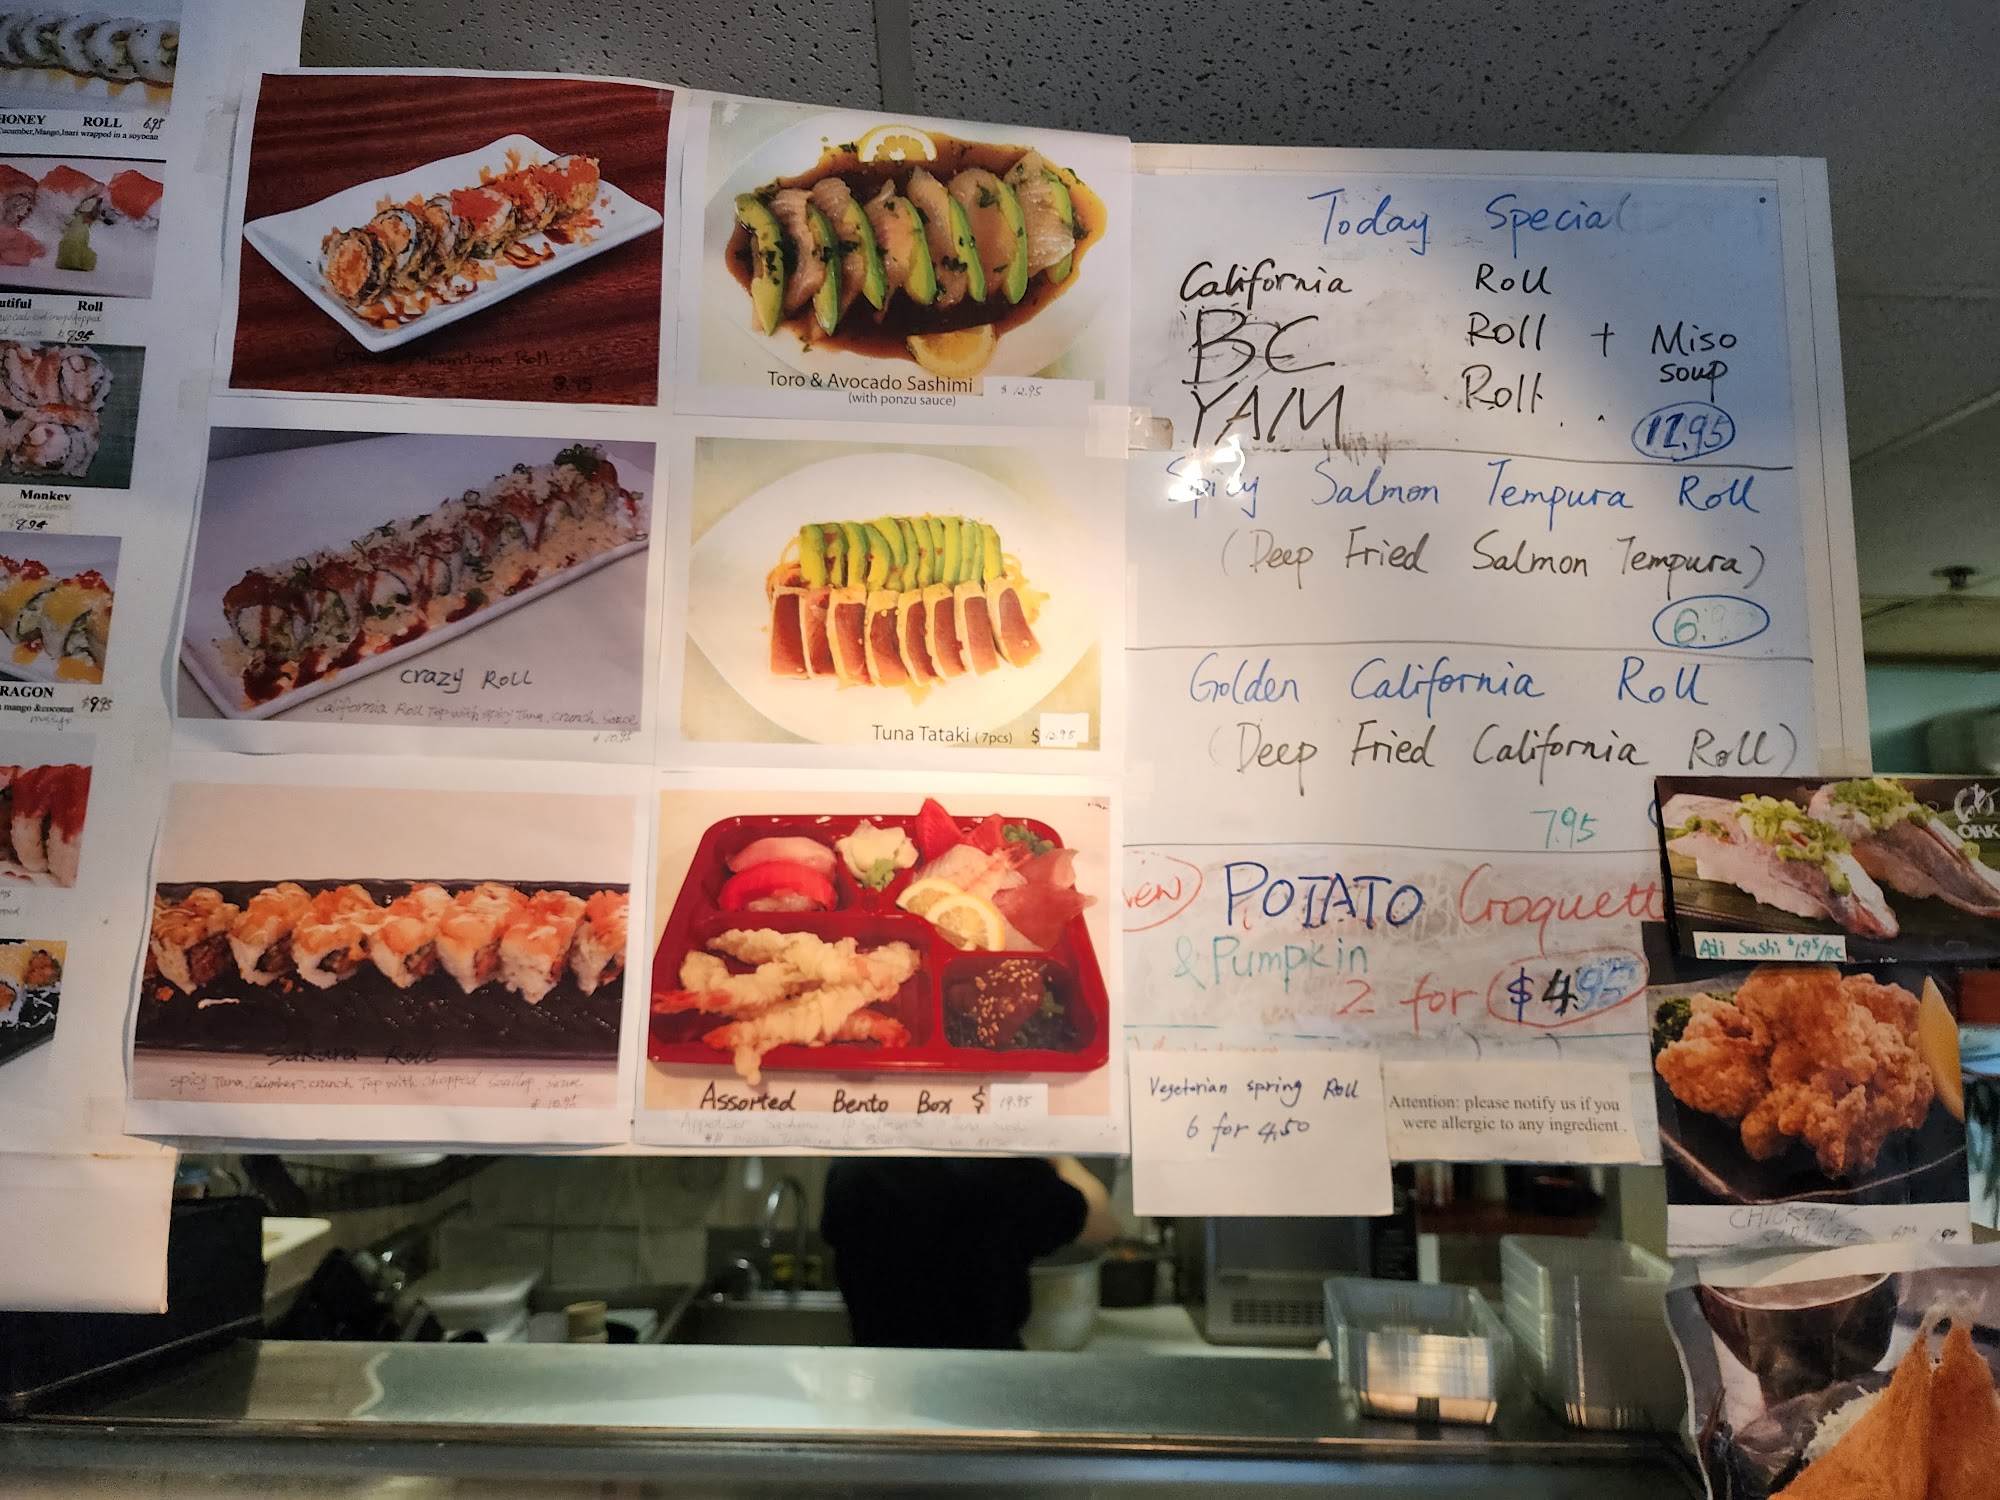 HONEY ROLL 6.95
Cucumber,Mango,Inari wrapped in a soybean
utiful Roll
$9.95
Monkey
$8.95
RAGON
mango &coconut $9.95
mango
Mountain Roll
Toro & Avocado Sashimi $12.95
(with ponzu sauce)
Crazy Roll
California Roll Top with spicy Tuna, crunch, Sauce
$10.95
Tuna Tataki (7pcs) $12.95
Sakura Roll
Spicy Tuna, crunch Top with chopped scallop, sauce
$10.95
Assorted Bento Box $19.95
Today Special
California Roll
BC Roll + Miso
soup
YAM Roll
12.95
Spicy Salmon Tempura Roll
(Deep Fried Salmon Tempura)
6.
Golden California Roll
(Deep Fried California Roll)
7.95
New POTATO Croquett
& Pumpkin
2 for $4.95
Vegetarian spring Roll
6 for 4.50
Attention: please notify us if you
were allergic to any ingredient .
Aji Sushi $1.95/PC
CHICKEN